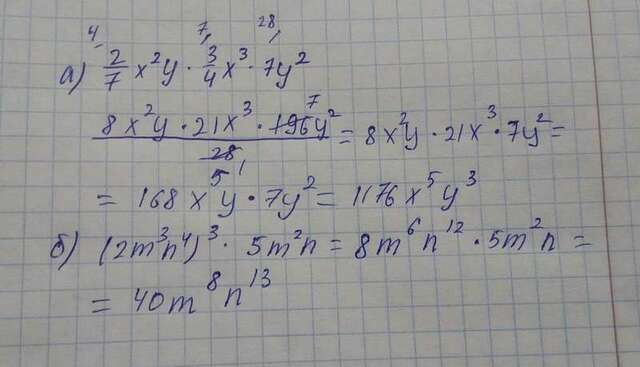 4 7, 28,
а) 2/7 x²y · 3/4 x³ · 7y²
7
8x²y · 21x³ · 196y² / 28 = 8x²y · 21x³ · 7y² =
1
= 168x⁵y · 7y² = 1176x⁵y³
б) (2m³n⁴)³ · 5m²n = 8m⁶n¹² · 5m²n =
= 40m⁸n¹³